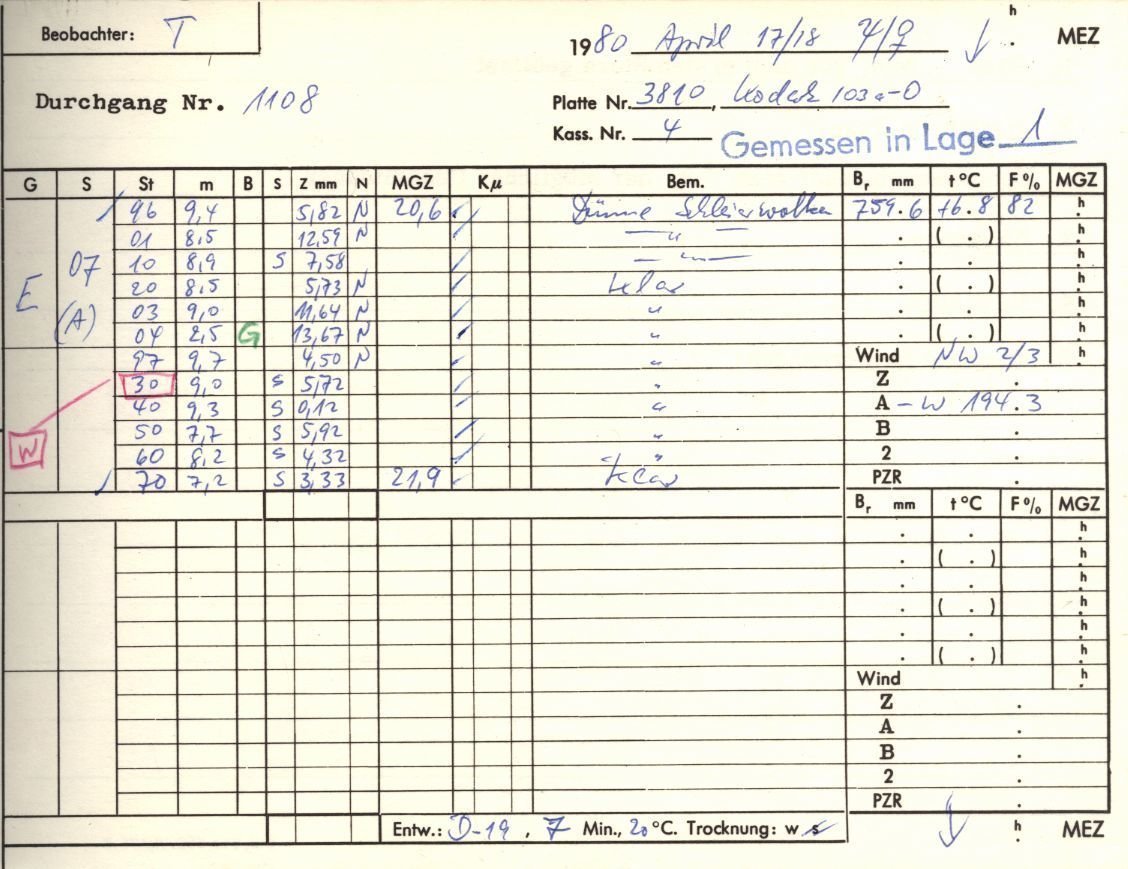 Beobachter: T
1980 April 17/18 ♃/♀ h . MEZ
Durchgang Nr. 1108
Platte Nr. 3810, Kodak 103a-O
Kass. Nr. 4 Gemessen in Lage 1
G S St m B S Z mm N MGZ Kμ Bem. Br mm t°C F% MGZ
96 9,4 5,82 N 20,6 Dünne Schleierwolken 759.6 +6.8 82 h
01 8,5 12,59 N — " — . ( . ) h
E 07 (A) 10 8,9 S 7,58 — " — . . h
20 8,5 5,73 N klar . ( . ) h
03 9,0 11,64 N " . . h
04 2,5 G 13,67 N " . ( . ) h
97 9,7 4,50 N " Wind NW 2/3 h
30 9,0 S 5,72 " Z .
40 9,3 S 0,12 " A -W 194.3
W 50 7,7 S 5,92 " B .
60 8,2 S 4,32 " 2 .
70 7,2 S 3,33 21,9 klar PZR .
Br mm t°C F% MGZ
. . h
. ( . ) h
. . h
. ( . ) h
. . h
. ( . ) h
Wind h
Z .
A .
B .
2 .
PZR .
Entw.: D-19, 7 Min., 20°C. Trocknung: w s h . MEZ